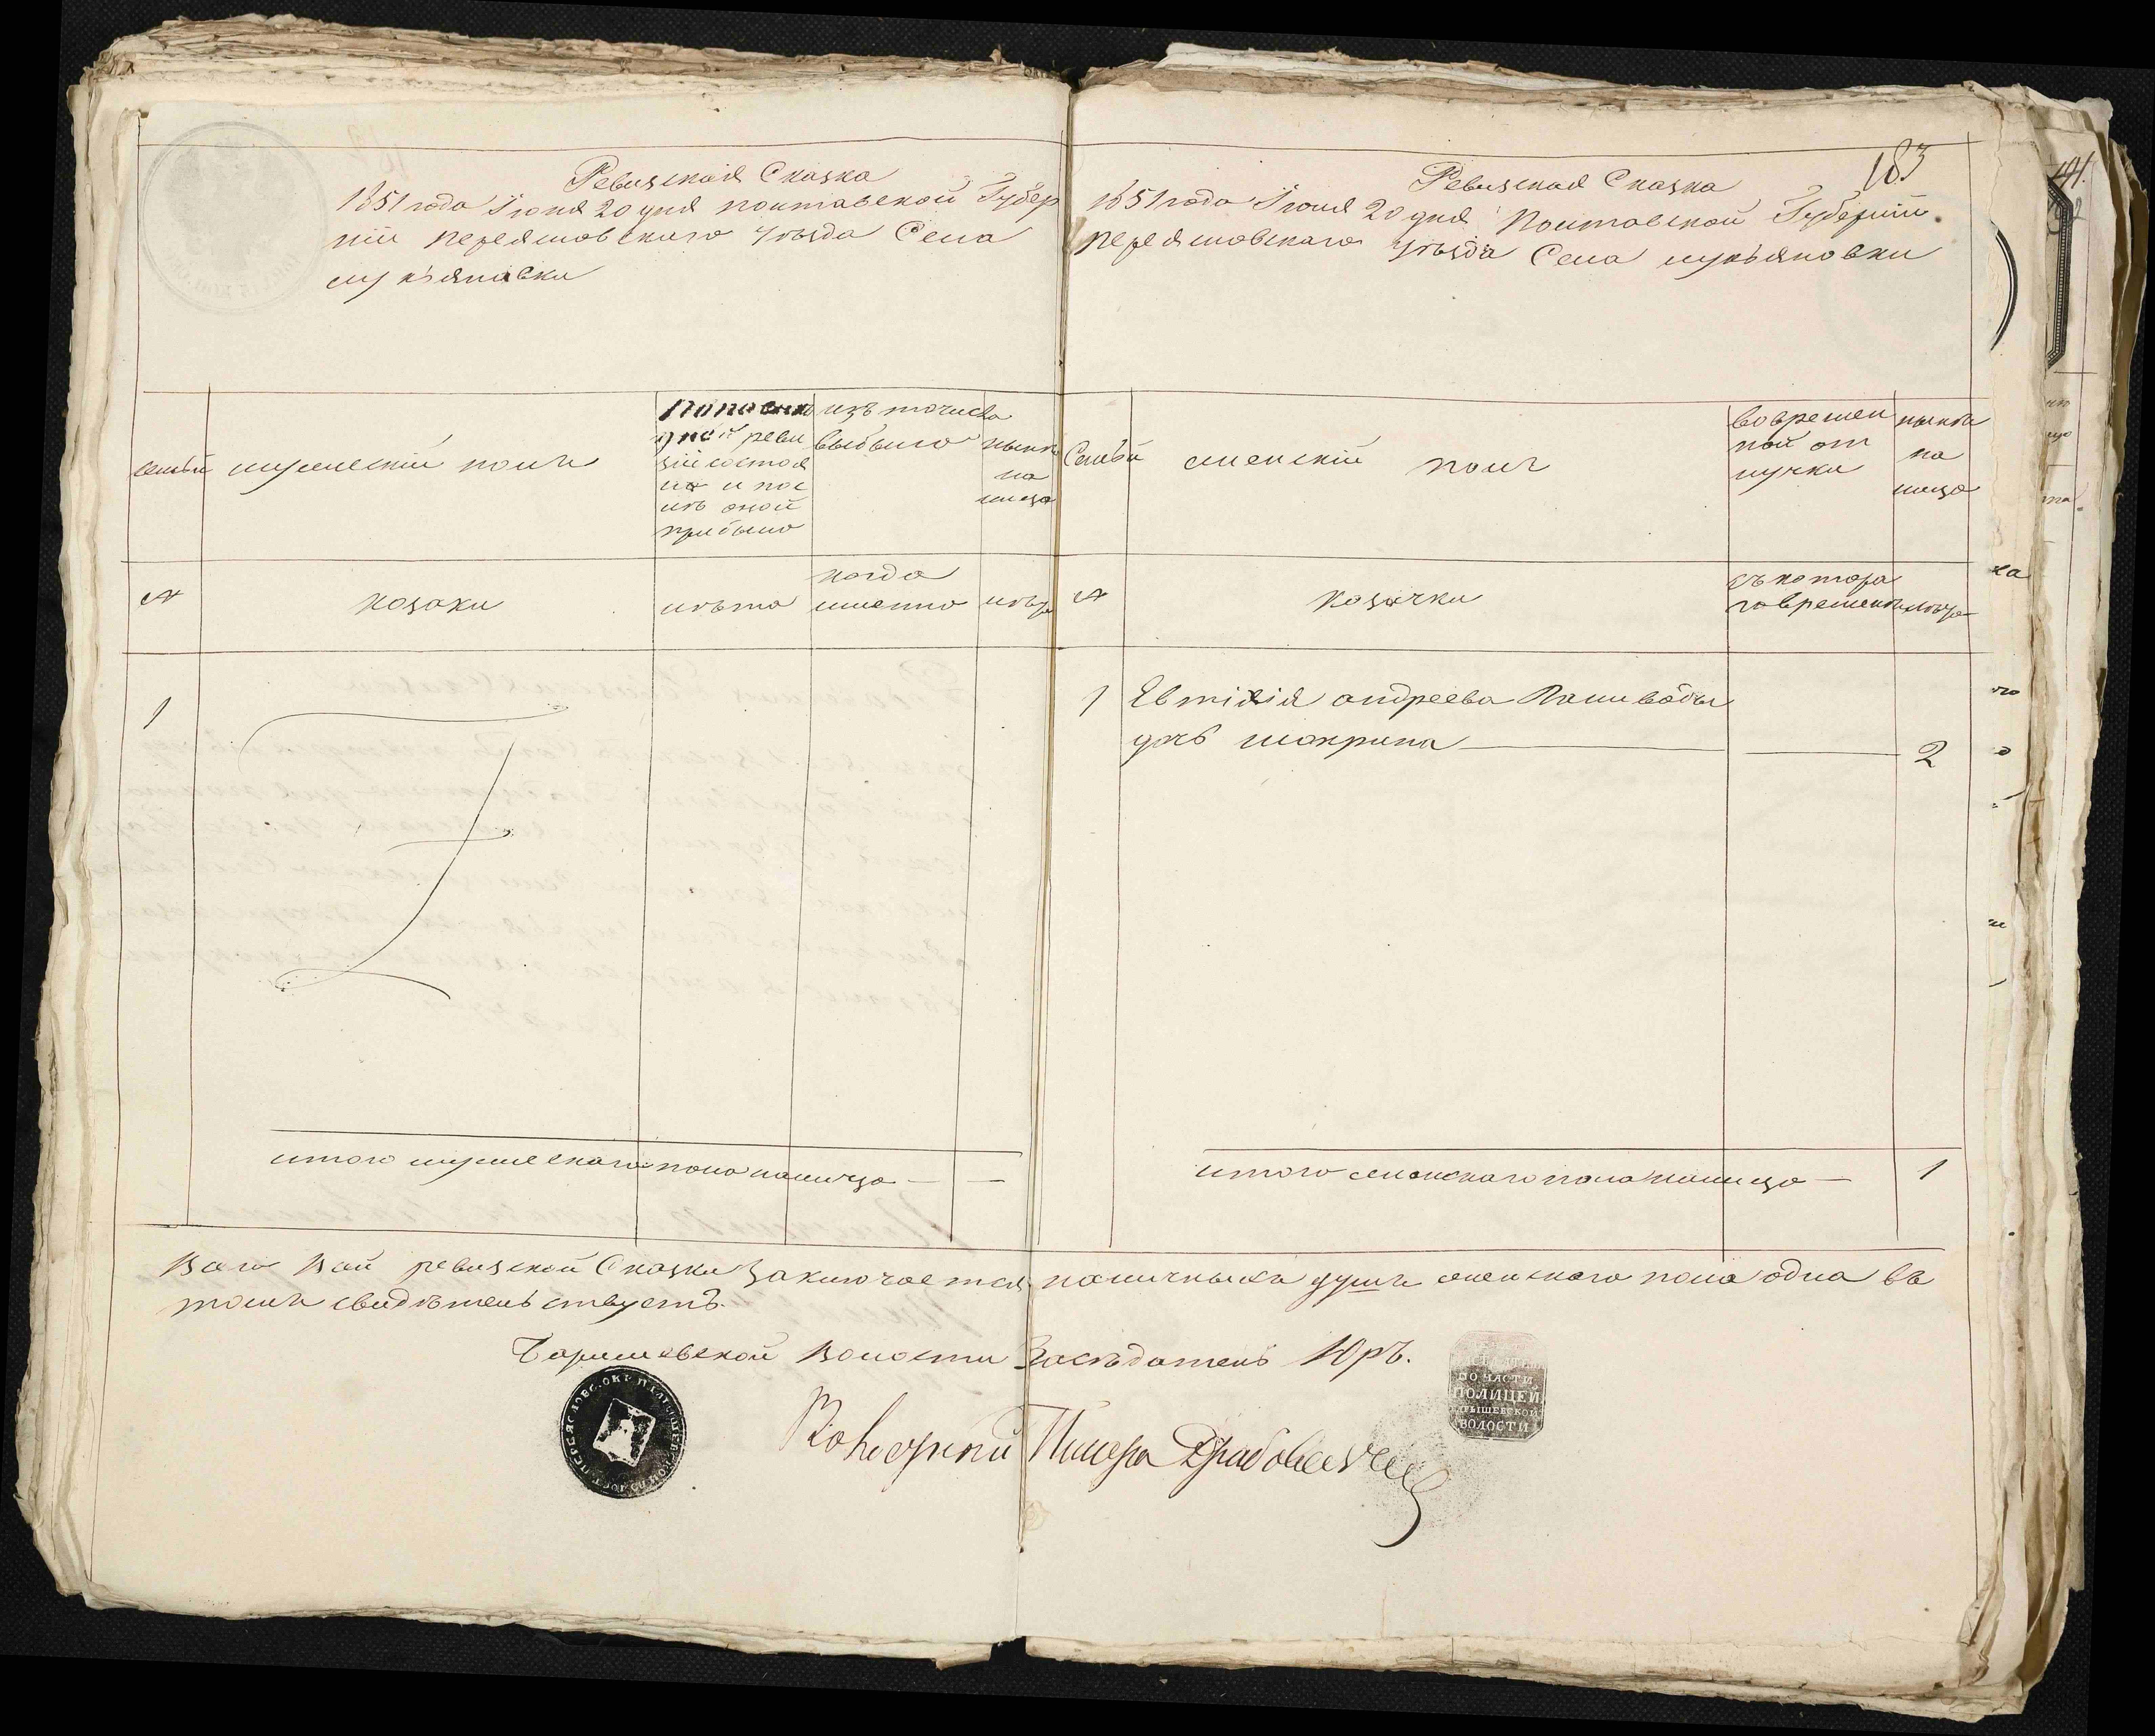 Ревизская Сказка
1851 года Іюня 20 дня полтавской Губер
ніи переяславскаго уѣзда Села
лукъяновки
семьи
мужескій полъ
По послѣд
ней реви
зіи состоя
ло и пос
лѣ оной
прибыло
изъ того числа
выбыло
нынѣ
на
лицо
№
козаки
лѣта
когда
именно
лѣта
1
итого мужескаго пола налицо —
183
Ревизская Сказка
1851 года Іюня 20 дня Полтавской Губерніи
переяславскаго уѣзда Села лукъяновки
Семьи
женскій полъ
во времен
ной от
лучки
нынѣ
на
лицо
№
козачки
съ котора
го времени
лѣта
1
Евтихія андреева Паливоды
дочь мокрина
2
итого женскаго пола налицо — 1
Всего в сей ревизской Сказки Заключается наличныхъ душъ женскаго пола одна въ
томъ свидѣтельствуетъ.
Барышевской волости Засѣдатель Юръ.
ПО ЧАСТИ
ПОЛИЦЕЙ
РЫШЕВСКОЙ
ВОЛОСТИ